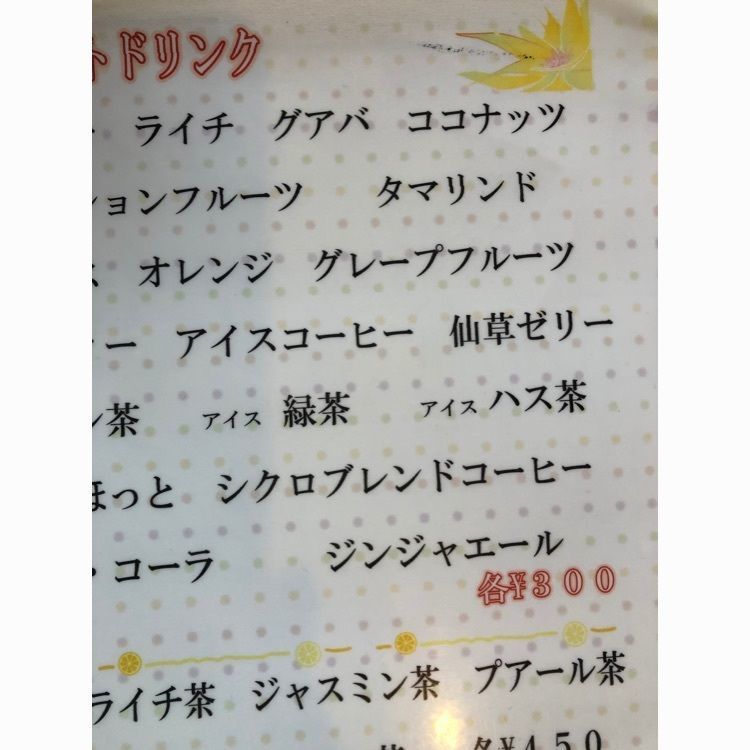 トドリンク
ライチ グアバ ココナッツ
ションフルーツ タマリンド
オレンジ グレープフルーツ
ー アイスコーヒー 仙草ゼリー
茶 アイス 緑茶 アイス ハス茶
ほっと シクロブレンドコーヒー
コーラ ジンジャエール
各¥300
ライチ茶 ジャスミン茶 プアール茶
各¥450